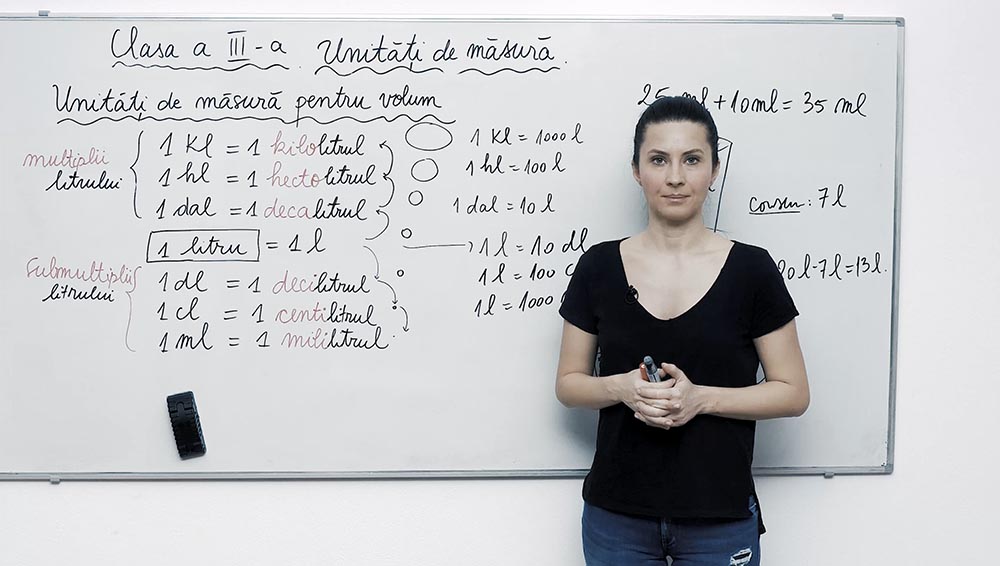 Clasa a III-a. Unități de măsură.
Unități de măsură pentru volum
multiplii
litrului
1 Kl = 1 kilolitrul
1 hl = 1 hectolitrul
1 dal = 1 decalitrul
1 litru = 1 l
submultiplii
litrului
1 dl = 1 decilitrul
1 cl = 1 centilitrul
1 ml = 1 mililitrul
1 Kl = 1000 l
1 hl = 100 l
1 dal = 10 l
1 l = 10 dl
1 l = 100 c
1 l = 1000
25 ml + 10 ml = 35 ml
consum: 7 l
20 l - 7 l = 13 l.